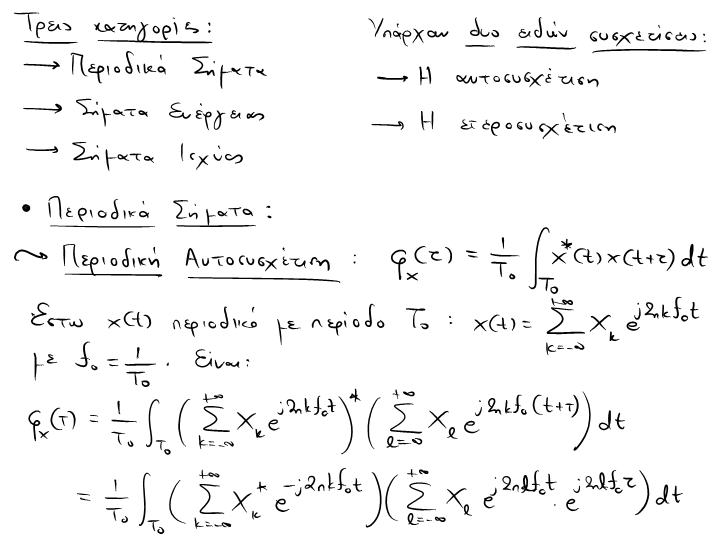 Τρεις κατηγορίες:
→ Περιοδικά Σήματα
→ Σήματα Ενέργειας
→ Σήματα Ισχύος
Υπάρχουν δυο ειδών συσχετίσεις:
→ Η αυτοσυσχέτιση
→ Η ετεροσυσχέτιση
• Περιοδικά Σήματα:
~> Περιοδική Αυτοσυσχέτιση : φ_x(τ) = 1/T₀ ∫_{T₀} x*(t) x(t+τ) dt
Έστω x(t) περιοδικό με περίοδο T₀ : x(t) = Σ_{k=-∞}^{+∞} X_k e^{j2πkf₀t}
με f₀ = 1/T₀ . Είναι:
φ_x(τ) = 1/T₀ ∫_{T₀} ( Σ_{k=-∞}^{+∞} X_k e^{j2πkf₀t} )* ( Σ_{ℓ=-∞}^{+∞} X_ℓ e^{j2πkf₀(t+τ)} ) dt
= 1/T₀ ∫_{T₀} ( Σ_{k=-∞}^{+∞} X_k* e^{-j2πkf₀t} ) ( Σ_{ℓ=-∞}^{+∞} X_ℓ e^{j2πℓf₀t} · e^{j2πℓf₀τ} ) dt